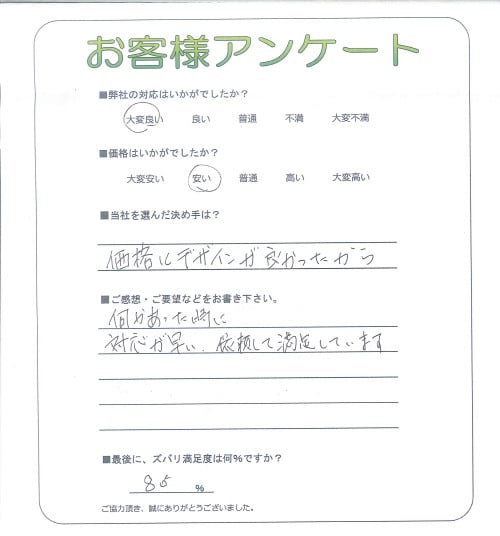 お客様アンケート
■弊社の対応はいかがでしたか?
大変良い 良い 普通 不満 大変不満
■価格はいかがでしたか?
大変安い 安い 普通 高い 大変高い
■当社を選んだ決め手は?
価格とデザインが良かったから
■ご感想・ご要望などをお書き下さい。
何かあった時に
対応が早い、依頼して満足しています
■最後に、ズバリ満足度は何%ですか?
85 %
ご協力頂き、誠にありがとうございました。